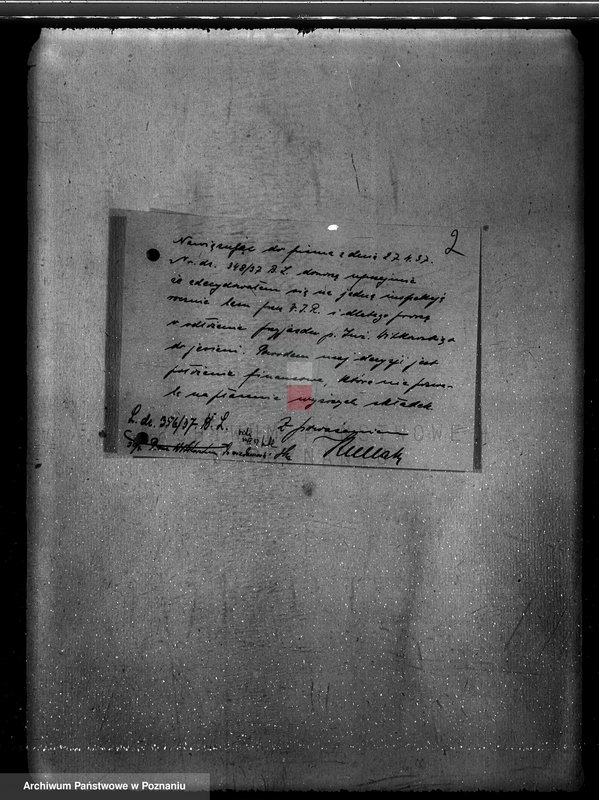 2
Nawiązując do pisma z dnia 27.4.37.
Nr. dz. 348/37 B.L. donoszę uprzejmie
że zdecydowałem się na jedną inspekcję
i dlatego proszę
o odłożenie przyjazdu p. Inż. Witkowskiego
do jesieni. Powodem mej decyzji jest
położenie finansowe, które nie pozwa-
la na płacenie wyższych składek.
Z poważaniem
L. dz. 356/37. B. L.
Archiwum Państwowe w Poznaniu